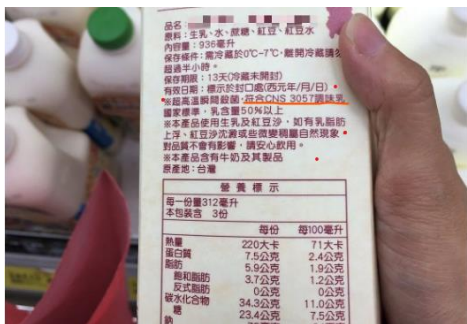 品名：
原料：生乳、水、蔗糖、紅豆、紅豆水
內容量：936毫升
保存條件：需冷藏於0℃-7℃，離開冷藏請勿
超過半小時。
保存期限：13天(冷藏未開封)
有效日期：標示於封口處(西元年/月/日)
※超高溫瞬間殺菌，符合CNS 3057調味乳
國家標準，乳含量50%以上
※本產品使用生乳及紅豆沙，如有乳脂肪
上浮、紅豆沙沈澱或些微變稠屬自然現象，
對品質不會有影響，請安心飲用。
※本產品含有牛奶及其製品
原產地：台灣
營養標示
每一份量312毫升
本包裝含 3份
每份 每100毫升
熱量 220大卡 71大卡
蛋白質 7.5公克 2.4公克
脂肪 5.9公克 1.9公克
飽和脂肪 3.7公克 1.2公克
反式脂肪 0公克 0公克
碳水化合物 34.3公克 11.0公克
糖 23.4公克 7.5公克
鈉